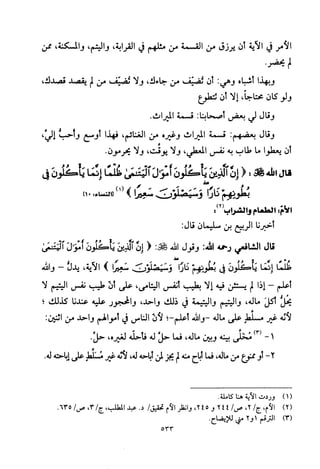 الأمر في الآية أن يرزق من القسمة من مثلهم في القرابة، واليتم، والمسكنة، ممن
لم يحضر.
وبهذا أشباه وهي: أن تُضِيْف من جاءك، ولا تُضيِّف من لم يقصد قصدك،
ولو كان محتاجاً، إلا أن تتطوع
وقال لي بعض أصحابنا: قسمة الميراث.
وقال بعضهم: قسمة الميراث وغيره من الغنائم، فهذا أوسع وأحبُّ إليَّ،
أن يعطوا ما طاب به نفس المعطي، ولا يوقَّت، ولا يحرمون.
قال الله ﷻ: ﴿ إِنَّ ٱلَّذِينَ يَأْكُلُونَ أَمْوَٰلَ ٱلْيَتَـٰمَىٰ ظُلْمًا إِنَّمَا يَأْكُلُونَ فِى
بُطُونِهِمْ نَارًا وَسَيَصْلَوْنَ سَعِيرًا ﴾ (١) [النساء: ١٠]
الأم: الطعام والشراب(٢):
أخبرنا الربيع بن سليمان قال:
قال الشافعي رحمه الله: وقول الله ﷻ: ﴿ إِنَّ ٱلَّذِينَ يَأْكُلُونَ أَمْوَٰلَ ٱلْيَتَـٰمَىٰ
ظُلْمًا إِنَّمَا يَأْكُلُونَ فِى بُطُونِهِمْ نَارًا وَسَيَصْلَوْنَ سَعِيرًا ﴾ الآية، يدلُّ – والله
أعلم – إذا لم يستثن فيه إلا بطيب أنفس اليتامى، على أنَّ طيب نفس اليتيم لا
يحلُّ أكل ماله، واليتيم واليتيمة في ذلك واحد، والمحجور عليه عندنا كذلك ؛
لأنه غير مسلط على ماله –والله أعلم–؛ لأنَّ الناس في أموالهم واحد من اثنين:
١- (٣) مُخَلَّى بينه وبين ماله، فما حلَّ له فأحلَّه لغيره، حلَّ.
٢- أو ممنوع من ماله، فما أباح منه لم يجز لمن أباحه له، لأنَّه غير مُسَلَّطٍ على إباحته له.
(١) وردت الآية هنا كاملة.
(٢) الأم، ج/٢، ص/٢٤٤ و ٢٤٥، وانظر الأم تحقيق/ د. عبد المطلب، ج/٣، ص/٦٣٥.
(٣) الترقيم ١و٢ مني للإيضاح.
٥٣٣